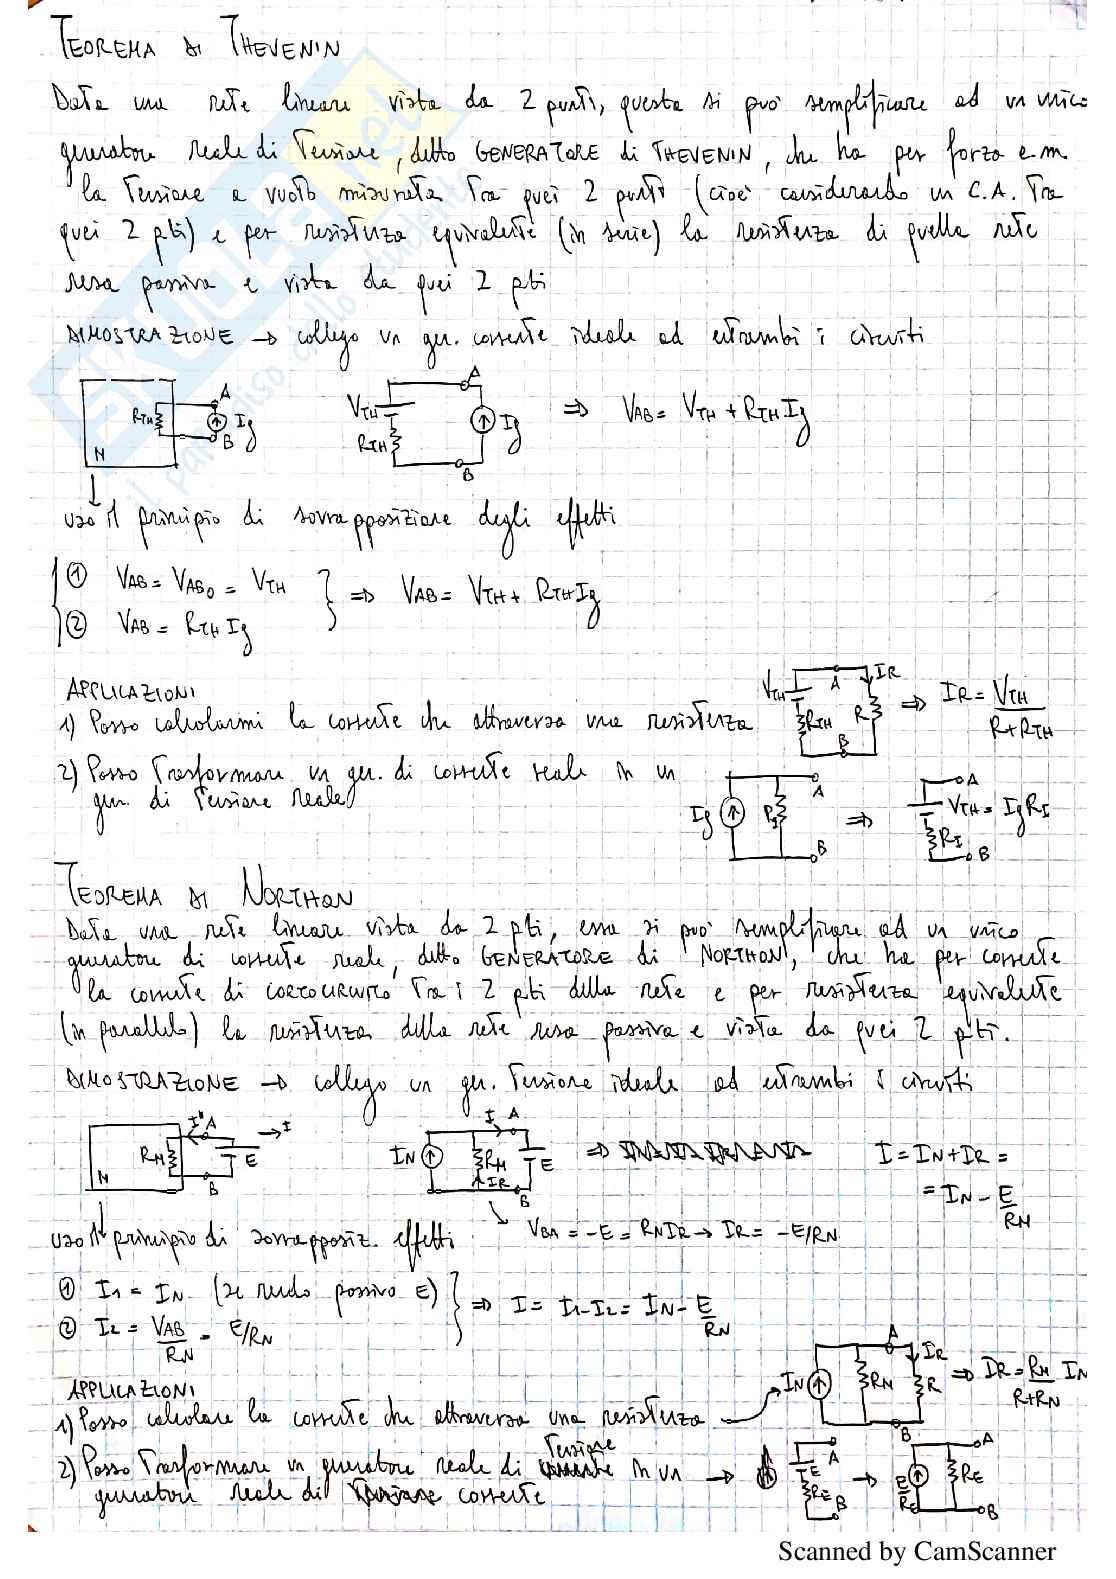 TEOREMA di THEVENIN
Data una rete lineare vista da 2 punti, questa si può semplificare ad un unico
generatore reale di Tensione, detto GENERATORE di THEVENIN, che ha per forza e.m.
la Tensione a vuoto misurata Tra quei 2 punti (cioè considerando un C.A. Tra
quei 2 pti) e per resistenza equivalente (in serie) la resistenza di quella rete
resa passiva e vista da quei 2 pti
DIMOSTRAZIONE → collego un gen. corrente ideale ad entrambi i circuiti
N RTH A B Ig
VTH RTH A B Ig ⇒ VAB = VTH + RTH Ig
uso il principio di sovrapposizione degli effetti
① VAB = VAB0 = VTH
② VAB = RTH Ig
⇒ VAB = VTH + RTH Ig
APPLICAZIONI
1) Posso calcolarmi la corrente che attraversa una resistenza
VTH RTH A B R IR ⇒ IR = VTH / R+RTH
2) Posso Trasformare un gen. di corrente reale in un
gen. di Tensione reale
Ig A B ⇒ A VTH = Ig RI RI B
TEOREMA di NORTHON
Data una rete lineare vista da 2 pti, essa si può semplificare ad un unico
generatore di corrente reale, detto GENERATORE di NORTHON, che ha per corrente
la corrente di CORTOCIRCUITO Tra i 2 pti della rete e per resistenza equivalente
(in parallelo) la resistenza della rete resa passiva e vista da quei 2 pti.
DIMOSTRAZIONE → collego un gen. Tensione ideale ad entrambi i circuiti
N RN A B E I
IN RN IR I A B E ⇒ I = IN + IR =
= IN - E/RN
VBA = -E = RN IR → IR = -E/RN
uso il principio di sovrapposiz. effetti
① I1 = IN (se rendo passivo E)
② I2 = VAB/RN = E/RN
⇒ I = I1 - I2 = IN - E/RN
APPLICAZIONI
1) Posso calcolare la corrente che attraversa una resistenza
IN RN A B R IR ⇒ IR = RN / R+RN IN
2) Posso Trasformare un generatore reale di Tensione in un →
generatore reale di corrente
A E RE B → E/RE RE A B
Scanned by CamScanner